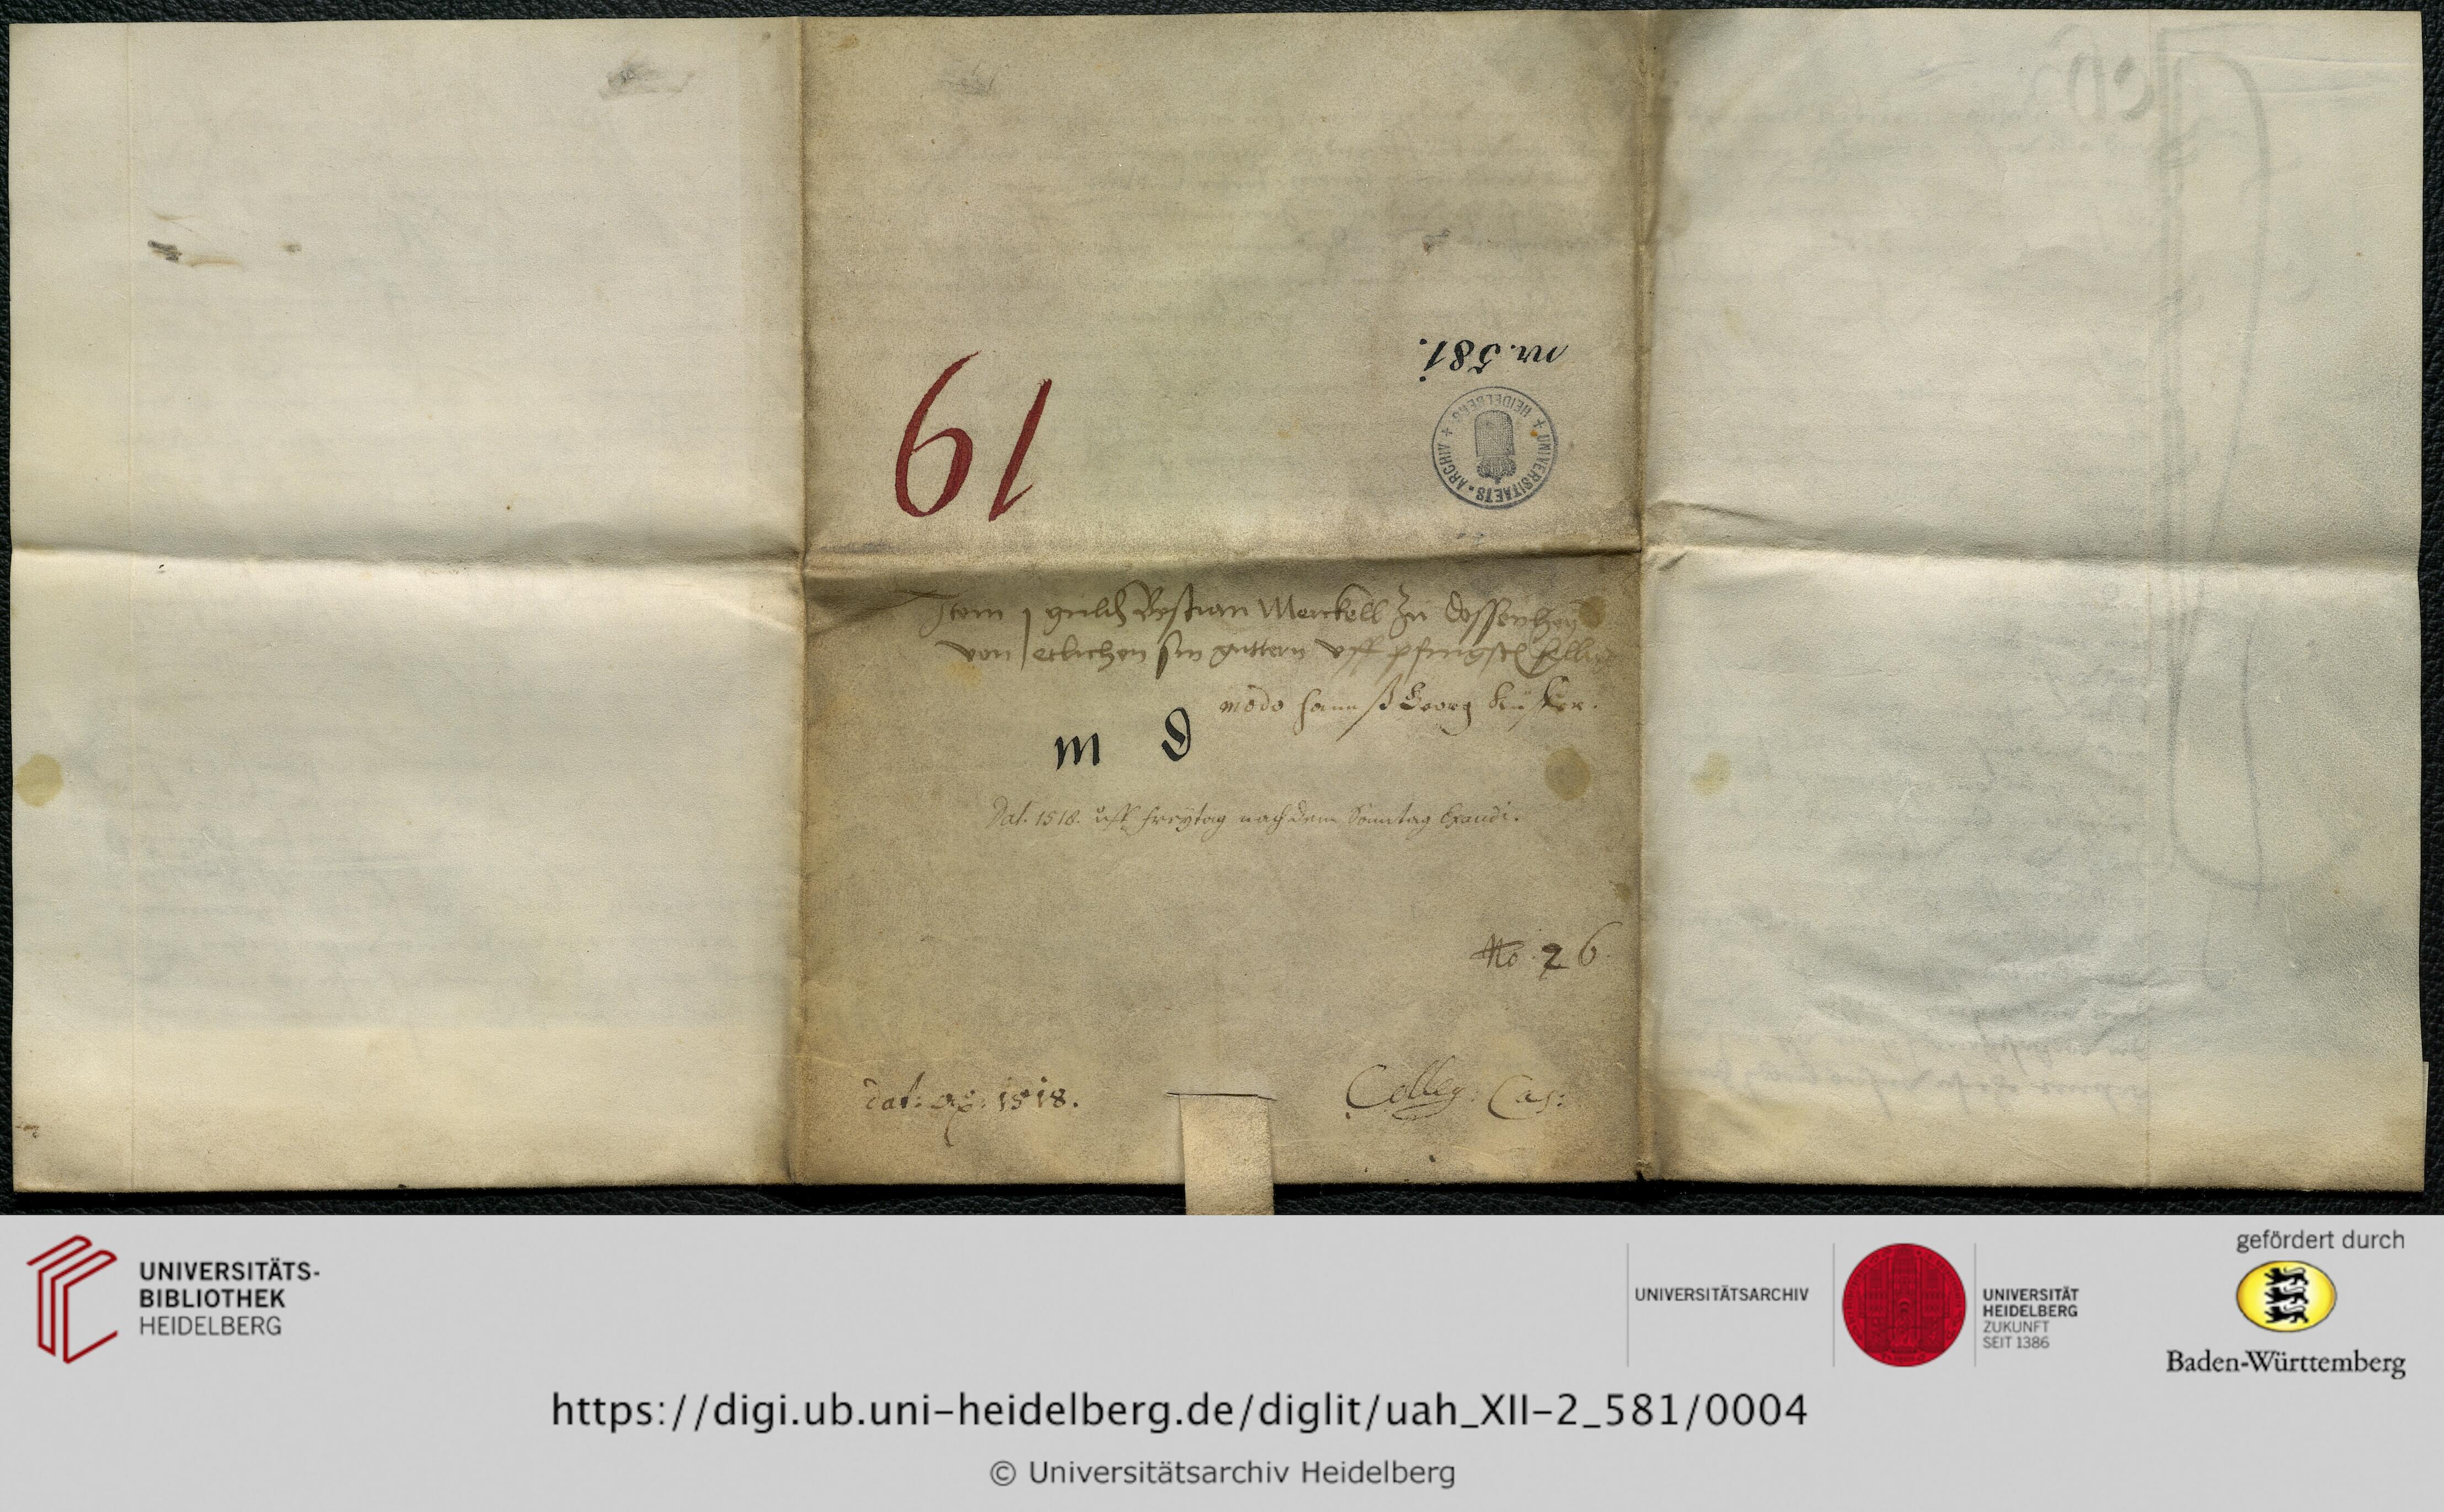 nr. 581.
UNIVERSITAETS-ARCHIV + HEIDELBERG +
61
Item 1 guld Bestian Merckell zu dossenhey
von etlichen sin guttern vff pfingst fellig
modo Hannß Georg
m d
Dat. 1518. uff Freytag nach dem Sonntag Exaudi.
No. 26.
dat: 1518.
Colleg: Cas:
UNIVERSITÄTS-
BIBLIOTHEK
HEIDELBERG
UNIVERSITÄTSARCHIV
UNIVERSITÄT
HEIDELBERG
ZUKUNFT
SEIT 1386
gefördert durch
Baden-Württemberg
https://digi.ub.uni-heidelberg.de/diglit/uah_XII-2_581/0004
© Universitätsarchiv Heidelberg